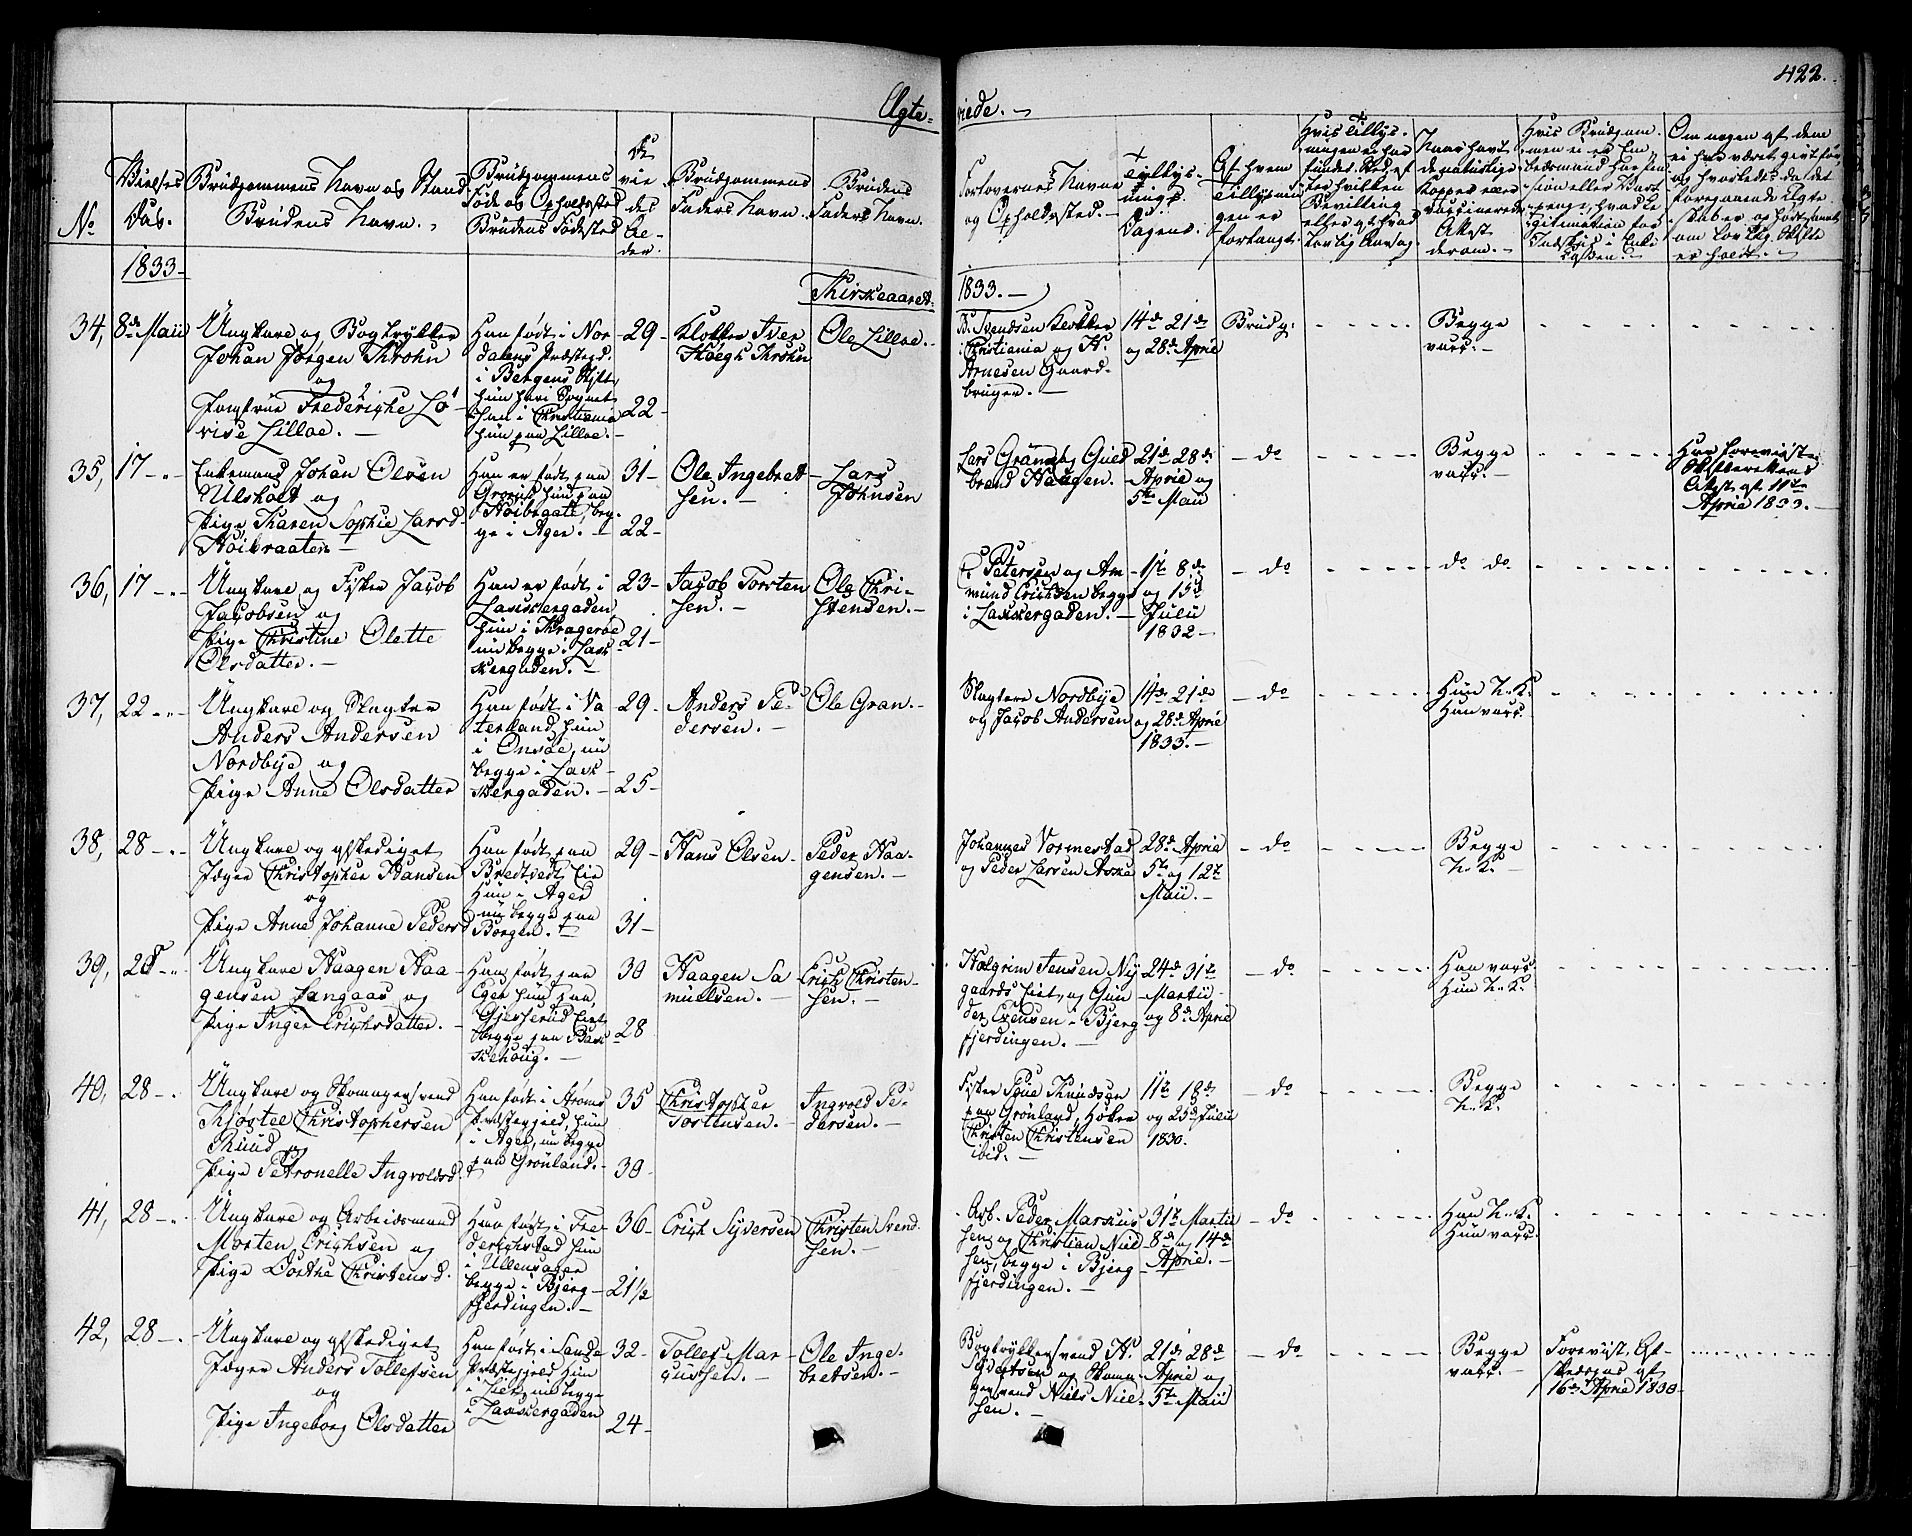 422.
Ægte=
viede. -
No
Vielses
Dag.
Brudgommens Navn og Stand
Brudens Navn.
Brudgommens
Føde og Opholdssted
Brudens Fødested
De
vie
des
Al-
der.
Brudgommens
Faders Navn.
Brudens
Faders Navn.
Forlovernes Navne
og Opholdssted.
Tillys-
nings
Dagene.
Af hvem
Tillysnin
gen er
forlangt.
1833
Kirkeaaret
1833. -
34,
8de Maii
Ungkarl og Bogtrykker
Johan Jørgen Krohn
og
Jomfrue Frederikke Lo-
vise Lilloe. -
Han født i Nor
dalens Præstegd.
i Bergens Stift,
hun her i Sognet
han i Christiania
hun paa Lilloe. -
29 -
22 -
Klokker Iver
Køegh Krohn
Ole Lilloe. -
Svendsen Klokker
i Christiania og H.
Arnesen Gaard-
bruger. -
14de 21de
og 28de April
Brudg:
Begge
vacc: -
35,
17 - " -
Enkemand Johan Olsen
Ulsholt og
Pige Karen Sophie Larsd.
Høibraaten -
Han er født paa
Grorud hun paa
beg-
ge i Ager. -
31 -
22 -
Ole Ingebret
sen. -
Lars
Johnsen
Lars Grønseth Guld
brand Haugen. -
21de 28de
April og
5te Maii
- do
Begge
vacc: -
Han foreviiste
Skifterettens
Attest af 11te
April 1833. -
36,
17 - " -
Ungkarl og Fisker Jacob
Jacobsen og
Pige Christine Olette
Olsdatter. -
Han er født i
Lakkergaden
hun i Kragerøe
nu begge i Lak
kergaden. -
23 -
21 -
Jacob Torsten
sen. -
Ole Chri-
stensen. -
Petersen og Am
mund Erichsen begge
i Lakkergaden. -
1ste 8de
og 15de
Julii
1832 -
- do
do do
37,
22 - " -
Ungkarl og Slagter
Anders Andersen
Nordbye og
Pige Anne Olsdatter
Han født i Va
terland, hun
i Onsøe, nu
begge i Lak-
kergaden. -
29 -
25 -
Anders Pe-
dersen. -
Ole Gran. -
Slagter Nordbye
og Jacob Andersen
14de 21de
og 28de April
1833. -
- do
Hun N. K.
Han vacc.
38,
28 - " -
Ungkarl og afskediget
Jæger Christopher Hansen
og
Pige Anne Johanne Pedersd
Han født paa
Bredtvedt Eie
hun i Ager
nu begge paa
Borgen. -
29 -
31 -
Hans Olsen -
Peder Haa-
gensen. -
Johannes Vormestad
og Peder Larsen Aska
28de April
5te og 12te
Maii. -
- do
Begge
N. K. -
39,
28 - " -
Ungkarl Haagen Haa
gensen Langaas og
Pige Inger Erichsdatter. -
Han født paa
Eger hun paa
Gjesserud Eiet
begge paa Bak
kehoug. -
30
28
Haagen Sa
muelsen. -
Erich Christen-
sen. -
Halgrim Jensen Ny
gaards Eiet, og Gun
der Evensen i Bjerg
fjerdingen. -
24de 31te
Martii
og 8de April
- do
Han vacc
Hun N. K.
40,
28 - " -
Ungkarl og Skomagersvend
Kjøstel Christophersen
Ruud og
Pige Petronelle Ingvoldsd.
Han født i Strøms
Præstegjeld, hun
i Ager, nu begge
paa Grønland. -
35
30 -
Christopher
Tostensen. -
Ingvold Pe-
dersen. -
Fisker Poul Knudsen
paa Grønland, Høker
Christen Christensen
ibid. -
11te 18de
og 25de Julii
1830.
- do
Begge
N. K.
41,
28 - " -
Ungkarl og Arbeidsmand
Morten Erichsen og
Pige Dorthe Christensd.
Han født i Fre-
derichstad hun
i Ullensager
begge i Bjerg-
fjerdingen. -
36 -
21 1/2
Erich Syversen
Christen Svend
sen. -
Arb. Peder Markus
sen og Christian Niel
sen, begge i Bjerg-
fjerdingen. -
31te Martii
8de og 14de
April. -
- do
Han N. K.
Hun vacc.
42,
28 - " -
Ungkarl og afskediget
Jæger Anders Tollefsen
og
Pige Ingeborg Olsdatter
Han født i Sande
Præstegjeld hun
i Lier, nu begge
i Lakkergaden
32 -
24 -
Tollef Mar-
cussen. -
Ole Inge-
bretsen. -
Bogtrykkersvend H.
Sivertsen og Skoma-
gersvend Niels Niel-
sen. -
21de 28de
April og
5te Maii
- do
Begge
vacc. -
Foreviist Af-
skedspas af
16de April 1830